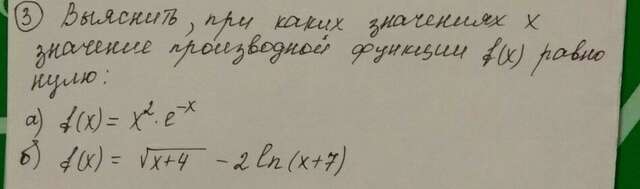 ③ Выяснить, при каких значениях x
значение производной функции f(x) равно
нулю:
а) f(x) = x²·e⁻ˣ
б) f(x) = √(x+4) - 2 ln(x+7)